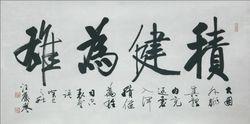 積健為雄
大用
外腓
真體
内充
返虚
入渾
積健
為雄